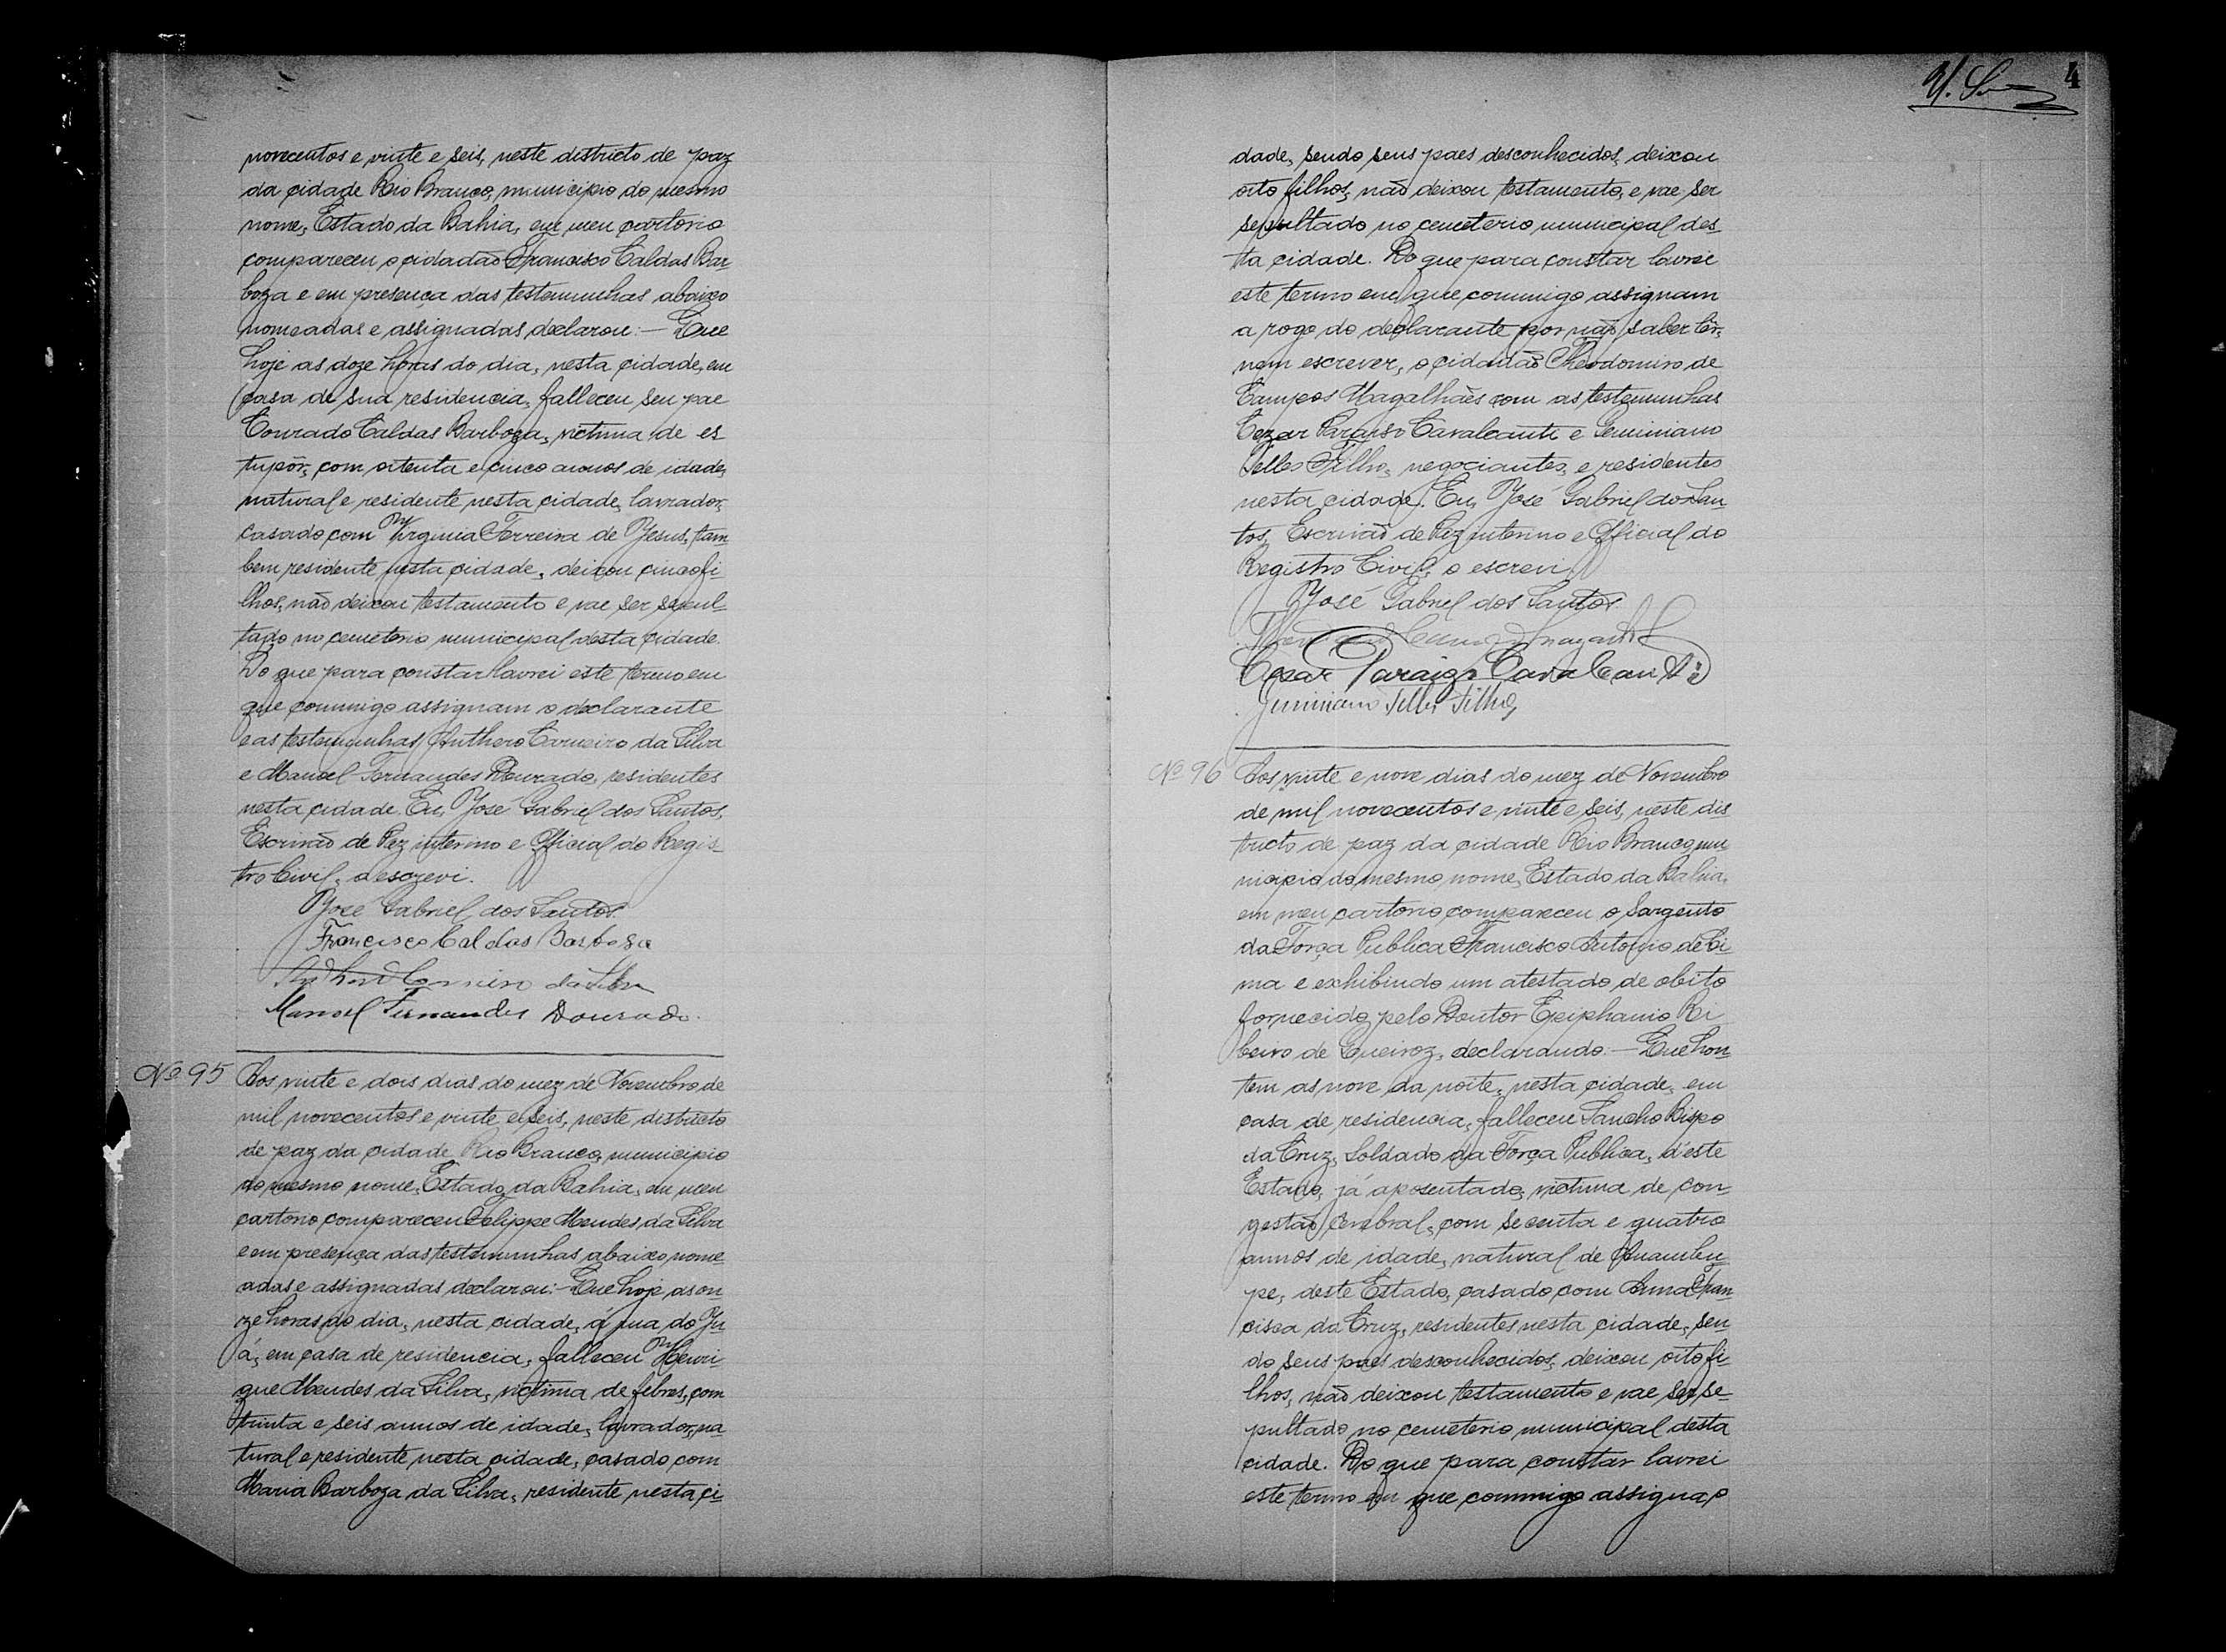 novecentos e vinte e seis, neste districto de paz
da cidade Rio Branco, municipio do mesmo
nome, Estado da Bahia, em meu cartorio
compareceu o cidadão Francisco Caldas Bar-
boza e em presença das testemunhas abaixo
nomeadas e assignadas declarou:- Que
hoje as doze horas do dia, nesta cidade, em
casa de sua residencia, falleceu seu pae
Conrado Caldas Barboza, victima de es-
tupôr, com oitenta e cinco annos de idade,
natural e residente nesta cidade, lavrador,
casado com Virginia Ferreira de Jesus, tam-
bem residente nesta cidade, deixou cinco fi-
lhos, não deixou testamento e vae ser sepul-
tado no cemeterio municipal desta cidade.
Do que para constar lavrei este termo em
que commigo assignam o declarante
e as testemunhas Anthero Carneiro da Silva
e Manoel Fernandes Dourado, residentes
nesta cidade. Eu, José Gabriel dos Santos,
Escrivão de Paz interino e Official do Regis-
tro Civil, o escrevi.
José Gabriel dos Santos.
Francisco Caldas Barbosa
Anthero Carneiro da Silva
Manoel Fernandes Dourado.
Nº 95 Aos vinte e dois dias do mez de Novembro de
mil novecentos e vinte e seis, neste districto
de paz da cidade Rio Branco, municipio
do mesmo nome, Estado da Bahia, em meu
cartorio compareceu Felippe Mendes da Silva
e em presença das testemunhas abaixo nome-
adas e assignadas declarou:- Que hoje as on-
ze horas do dia, nesta cidade, á rua do Ju-
á, em casa de residencia, falleceu Henri-
que Mendes da Silva, victima de febres, com
trinta e seis annos de idade, lavrador, na-
tural e residente nesta cidade, casado com
Maria Barboza da Silva, residente nesta ci-
4
dade, sendo seus paes desconhecidos, deixou
oito filhos, não deixou testamento, e vae ser
sepultado no cemeterio municipal des-
ta cidade. Do que para constar lavrei
este termo em que commigo assignam
a rogo do declarante por não saber lêr,
nem escrever, o cidadão Theodomiro de
Campos Magalhães com as testemunhas
Cezar Paraiso Cavalcanti e Geminiano
Telles Filho, negociantes, e residentes
nesta cidade. Eu, José Gabriel do San-
tos, Escrivão de Paz interino e Official do
Registro Civil, o escrevi.
José Gabriel dos Santos
Cezar Paraizo Cavalcanti
Geminiano Telles Filho,
Nº 96 Aos vinte e nove dias do mez de Novembro
de mil novecentos e vinte e seis, neste dis
tricto de paz da cidade Rio Branco, mu
nicipio do mesmo nome, Estado da Bahia,
em meu cartorio compareceu o Sargento
da Força Publica Francisco Antonio de Li-
ma e exhibindo um atestado de obito
fornecido pelo Doutor Epiphanio Ri
beiro de Queiroz, declarando:- Que hon-
tem as nove da noite, nesta cidade, em
casa de residencia, falleceu Sancho Bispo
da Cruz, Soldado da Força Publica, d'este
Estado, já aposentado, victima de con-
gestão cerebral, com secenta e quatro
annos de idade, natural de Inhambu-
pe, deste Estado, casado com Anna Fran-
cisca da Cruz, residentes nesta cidade, sen-
do seus paes desconhecidos, deixou oito fi-
lhos, não deixou testamento e vae ser se-
pultado no cemeterio municipal desta
cidade. Do que para constar lavrei
este termo em que commigo assigna, o